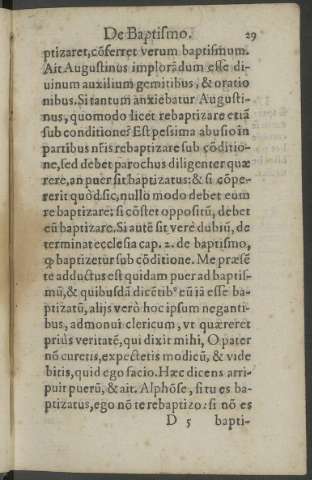 De Baptismo. 29
ptizaret, cõferret verum baptismum.
Ait Augustinus implorãdum esse di-
uinum auxilium gemitibus, & oratio
nibus. Si tantum anxiebatur Augusti-
nus, quomodo licet rebaptizare etiã
sub conditione? Est pessima abusio in
partibus nr̃is rebaptizare sub cõditio-
ne, sed debet parochus diligenter quæ
rere, an puer sit baptizatus: & si cõpe-
rerit quòd sic, nullo modo debet eum
rebaptizare; si cõstet oppositũ, debet
eũ baptizare. Si autẽ sit verè dubiũ, de
terminat ecclesia cap. 2. de baptismo,
ꝙ baptizetur sub cõditione. Me præsẽ
te adductus est quidam puer ad baptis-
mũ, & quibusdã dicẽtibꝰ eũ iã esse ba-
ptizatũ, alijs verò hoc ipsum neganti-
bus, admonui clericum, vt quæreret
priùs veritatẽ, qui dixit mihi, O pater
nõ curetis, expectetis modicũ, & vide
bitis, quid ego facio. Hæc dicens arri-
puit puerũ, & ait. Alphõse, si tu es ba-
ptizatus, ego nõ te rebaptizo: si nõ es
D 5 bapti-